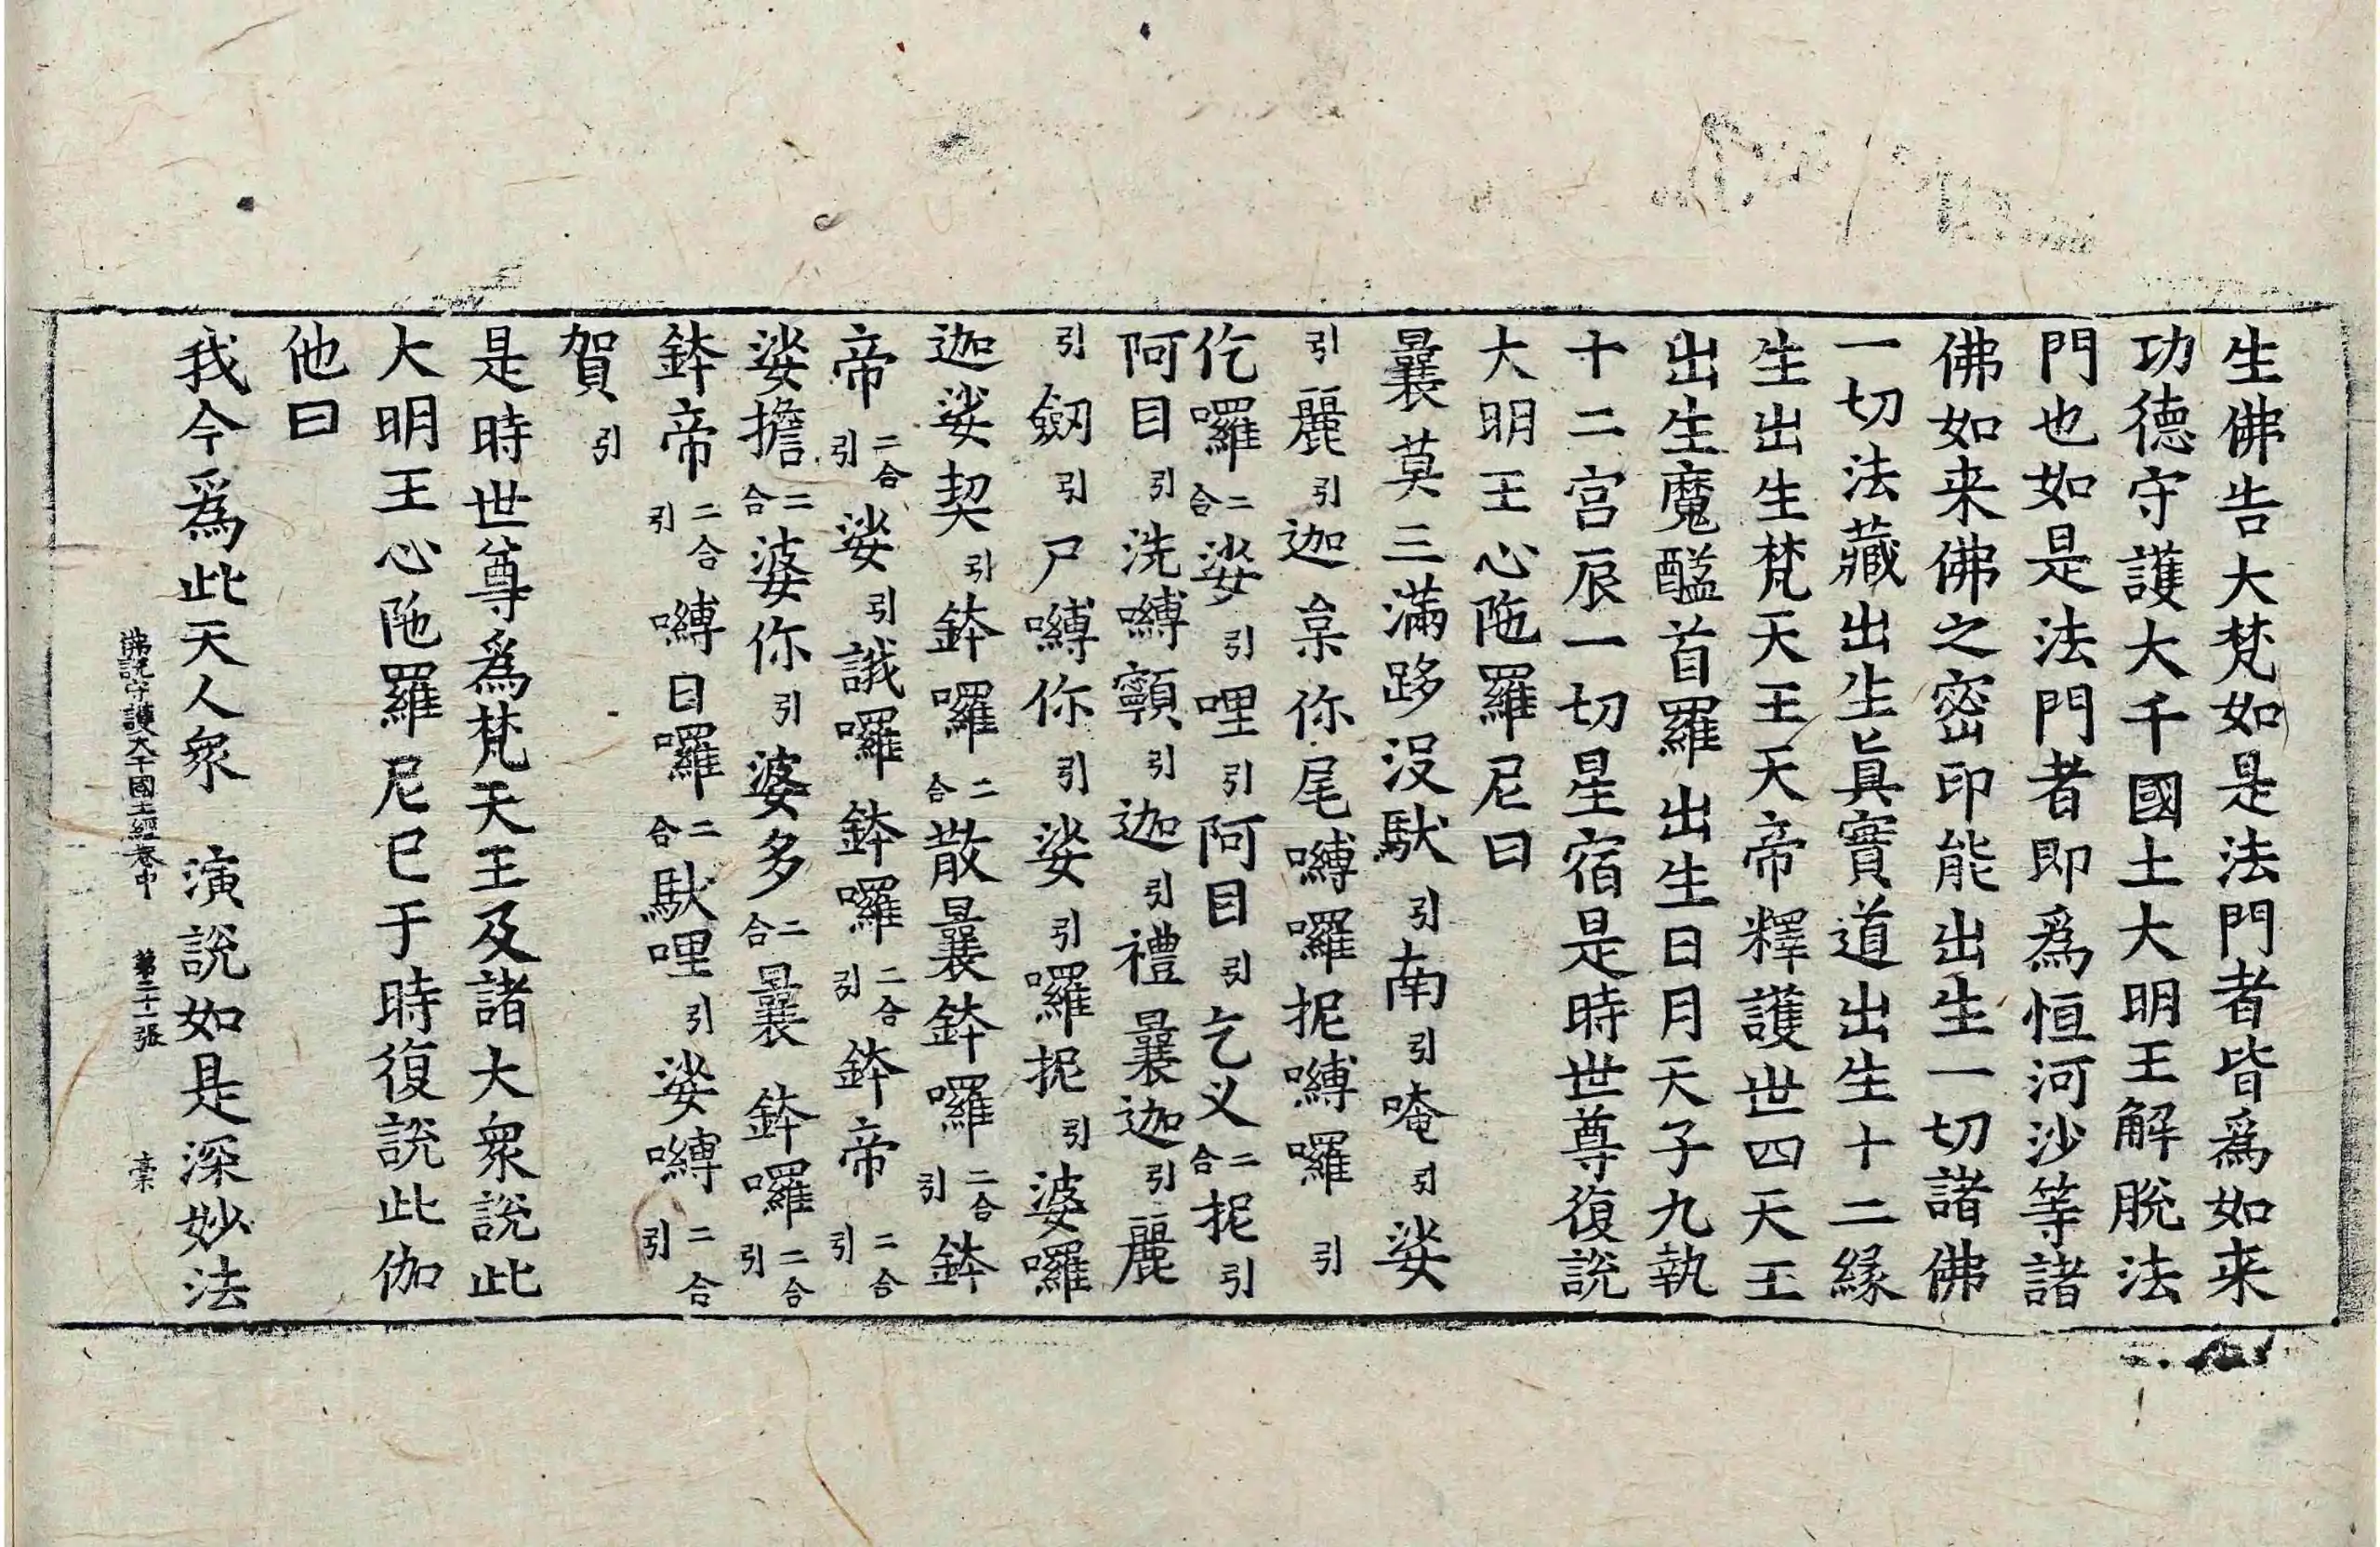 生佛告大梵如是法門者皆爲如来
功德守護大千國土大明王解脫法
門也如是法門者即爲恒河沙等諸
佛如来佛之密印能出生一切諸佛
一切法藏出生眞實道出生十二緣
生出生梵天王天帝釋護世四天王
出生魔醯首羅出生日月天子九執
十二宮辰一切星宿是時世尊復說
大明王心陁羅尼曰
曩莫三滿跢没馱引南引唵引娑
引麗引迦𩜁你尾嚩囉抳嚩囉引
仡囉二合娑引哩引阿目引乞义二合抳引
阿目引洗嚩顐引迦引禮曩迦引麗
引劒引尸嚩你引娑引囉抳引婆囉
迦娑契引鉢囉二合散曩鉢囉二合引鉢
帝二合引娑引誐囉鉢囉二合引鉢帝二合引
娑擔二合婆你引婆多二合曩鉢囉二合引
鉢帝二合引嚩日囉二合馱哩引娑嚩二合引
賀引
是時世尊爲梵天王及諸大衆說此
大明王心陁羅尼已于時復說此伽
他曰
我今爲此天人衆　演說如是深妙法
佛說守護大千國土經卷中　第二十一張　𩜁